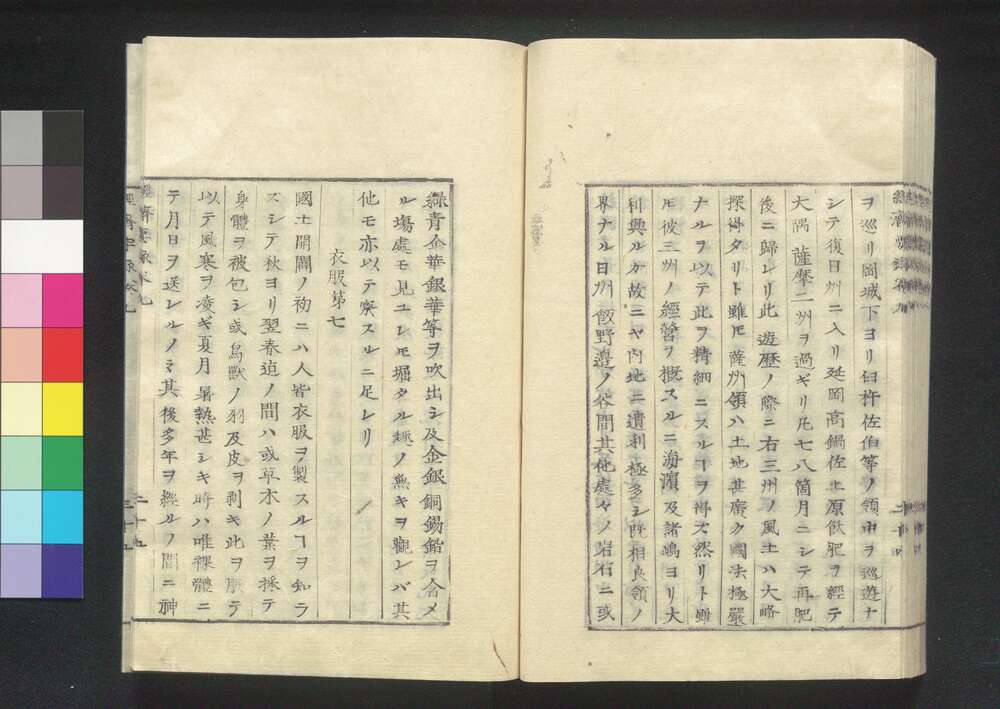 ヲ巡リ岡城下ヨリ臼杵佐伯等ノ領中ヲ巡遊ナ
シテ復日州ニ入リ延岡高鍋佐土原飫肥ヲ經テ
大隅薩摩二州ヲ過ギリ凡七八箇月ニシテ再肥
後ニ歸レリ此遊歴ノ際ニ右三州ノ風土ハ大略
探得タリト雖𪜈薩州領ハ土地甚廣ク國法極嚴
ナルヲ以テ此ヲ精細ニスルヿヲ得ズ然リト雖
𪜈彼三州ノ經營ヲ概スルニ海濵及諸嶋ヨリ大
利興ルガ故ニヤ内地ニ遺利極多シ既相良領ノ
界ナル日州飯野邉ノ谷間其他處々ノ岩石ニ或
緑青金華銀華等ヲ吹出シ及金銀銅錫鉛ヲ含メ
ル塲處モ見ユレ𪜈堀タル趣ノ無キヲ觀レバ其
他モ亦以テ察スルニ足レリ
衣服第七
國土開闢ノ初ニハ人皆衣服ヲ製スルヿヲ知ラ
ズシテ秋ヨリ翌春迠ノ間ハ或草木ノ葉ヲ採テ
身體ヲ被包シ或鳥獸ノ羽及皮ヲ剥キ此ヲ服テ
以テ風寒ヲ凌ギ夏月暑熱甚シキ時ハ唯裸體ニ
テ月日ヲ送レルノミ其後多年ヲ經ルノ間ニ神